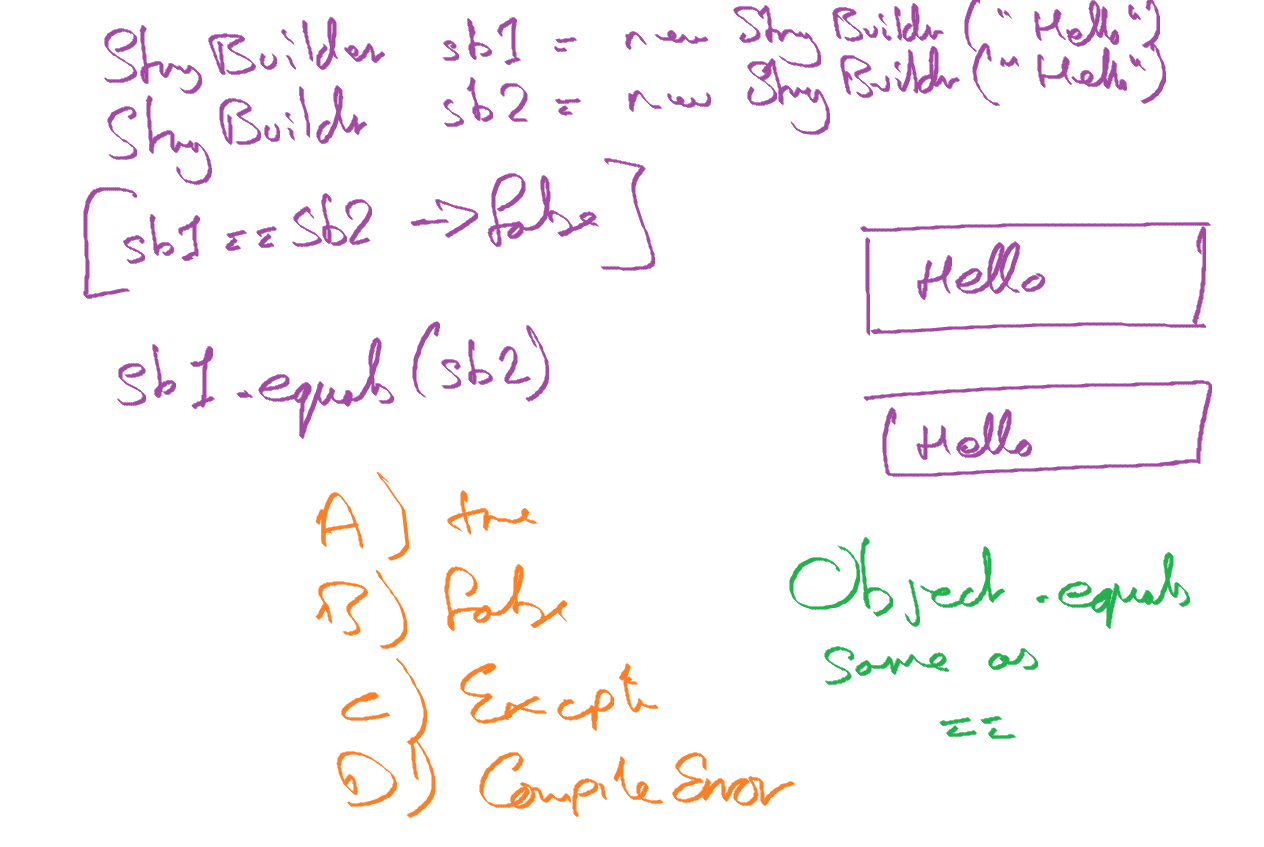 StringBuilder sb1 = new StringBuilder("Hello")
StringBuilder sb2 = new StringBuilder("Hello")
[sb1 == sb2 -> false]
Hello
sb1.equals(sb2)
Hello
A) true
B) false
C) Except
D) Compile Error
Object.equals
same as
==